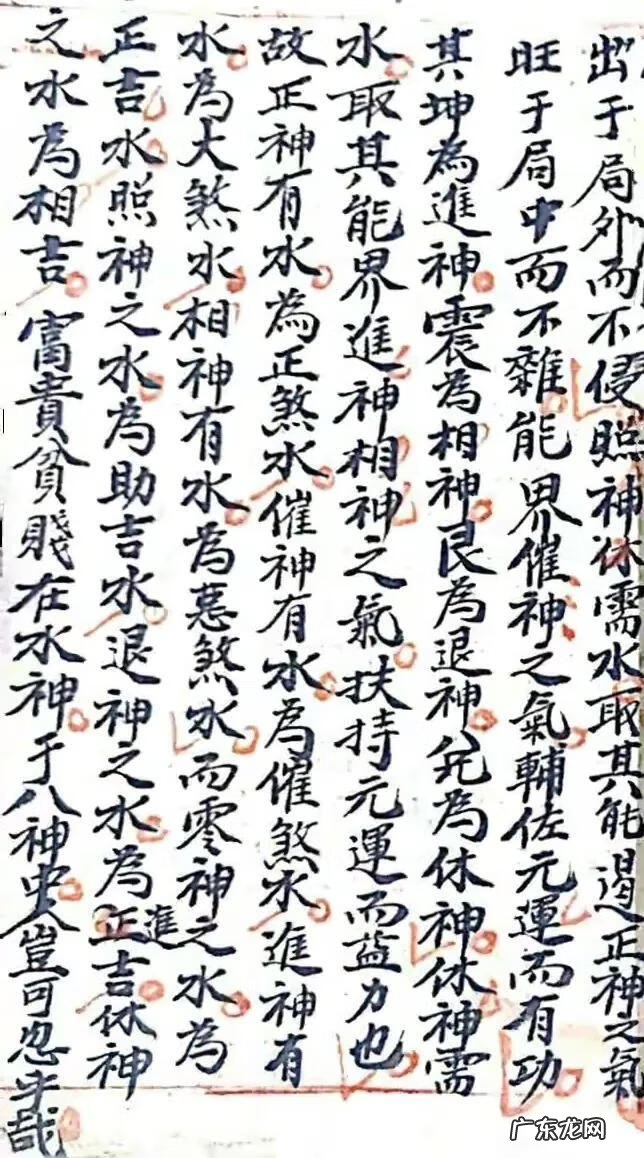 出于局外而不侵照神休需水取其能遏正神之氣
旺于局中而不雜能界催神之氣輔佐元運而有功
其坤為進神震為相神艮為退神兌為休神休神需
水取其能界進神相神之氣扶持元運而益力也
故正神有水為正煞水催神有水為催煞水進神有
水為大煞水相神有水為惡煞水而零神之水為
正吉水照神之水為助吉水退神之水為進正吉休神
之水為相吉富貴貧賤在水神于八神中人豈可忽乎哉
广东龙网